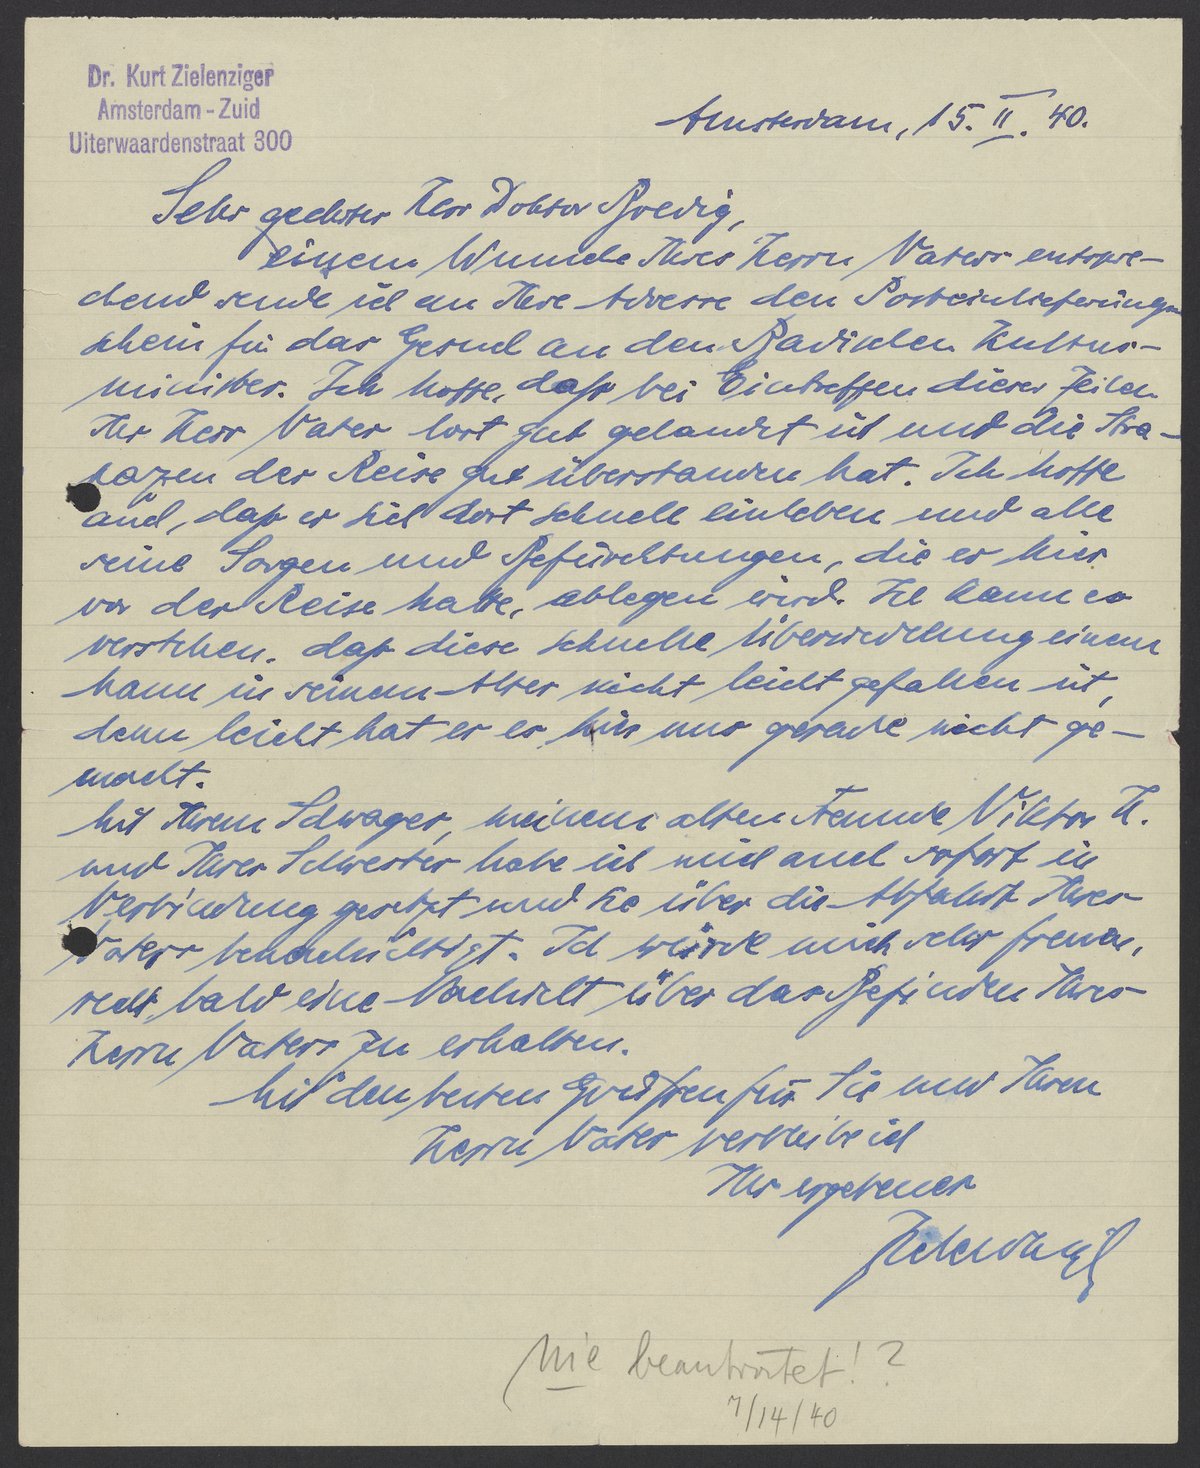 Dr. Kurt Zielenziger
Amsterdam - Zuid
Uiterwaardenstraat 300
Amsterdam, 15. II. 40.
Sehr geehrter Herr Doktor Broedig,
einem Wunsche Ihres Herrn Vaters entspre-
chend sende ich an Ihre Adresse den Posteinlieferungs-
schein für das Gesuch an den Badischen Kultus-
minister. Ich hoffe, daß bei Eintreffen dieser Zeilen
Ihr Herr Vater dort gut gelandet ist und die Stra-
pazen der Reise gut überstanden hat. Ich hoffe
auch, daß er sich dort schnell einleben und alle
seine Sorgen und Befürchtungen, die er hier
vor der Reise hatte, ablegen wird. Ich kann es
verstehen, daß diese schnelle Übersiedlung einem
Mann in seinem Alter nicht leicht gefallen ist,
denn leicht hat er es hier uns gerade nicht ge-
macht.
Mit Ihrem Schwager, meinem alten Freunde Viktor H.
und Ihrer Schwester habe ich mich auch sofort in
Verbindung gesetzt und sie über die Abfahrt Ihres
Vaters benachrichtigt. Ich würde mich sehr freuen,
recht bald eine Nachricht über das Befinden Ihres
Herrn Vaters zu erhalten.
Mit den besten Grüßen für Sie und Ihren
Herrn Vater verbleibe ich
Ihr ergebener
Nie beantwortet!?
7/14/40